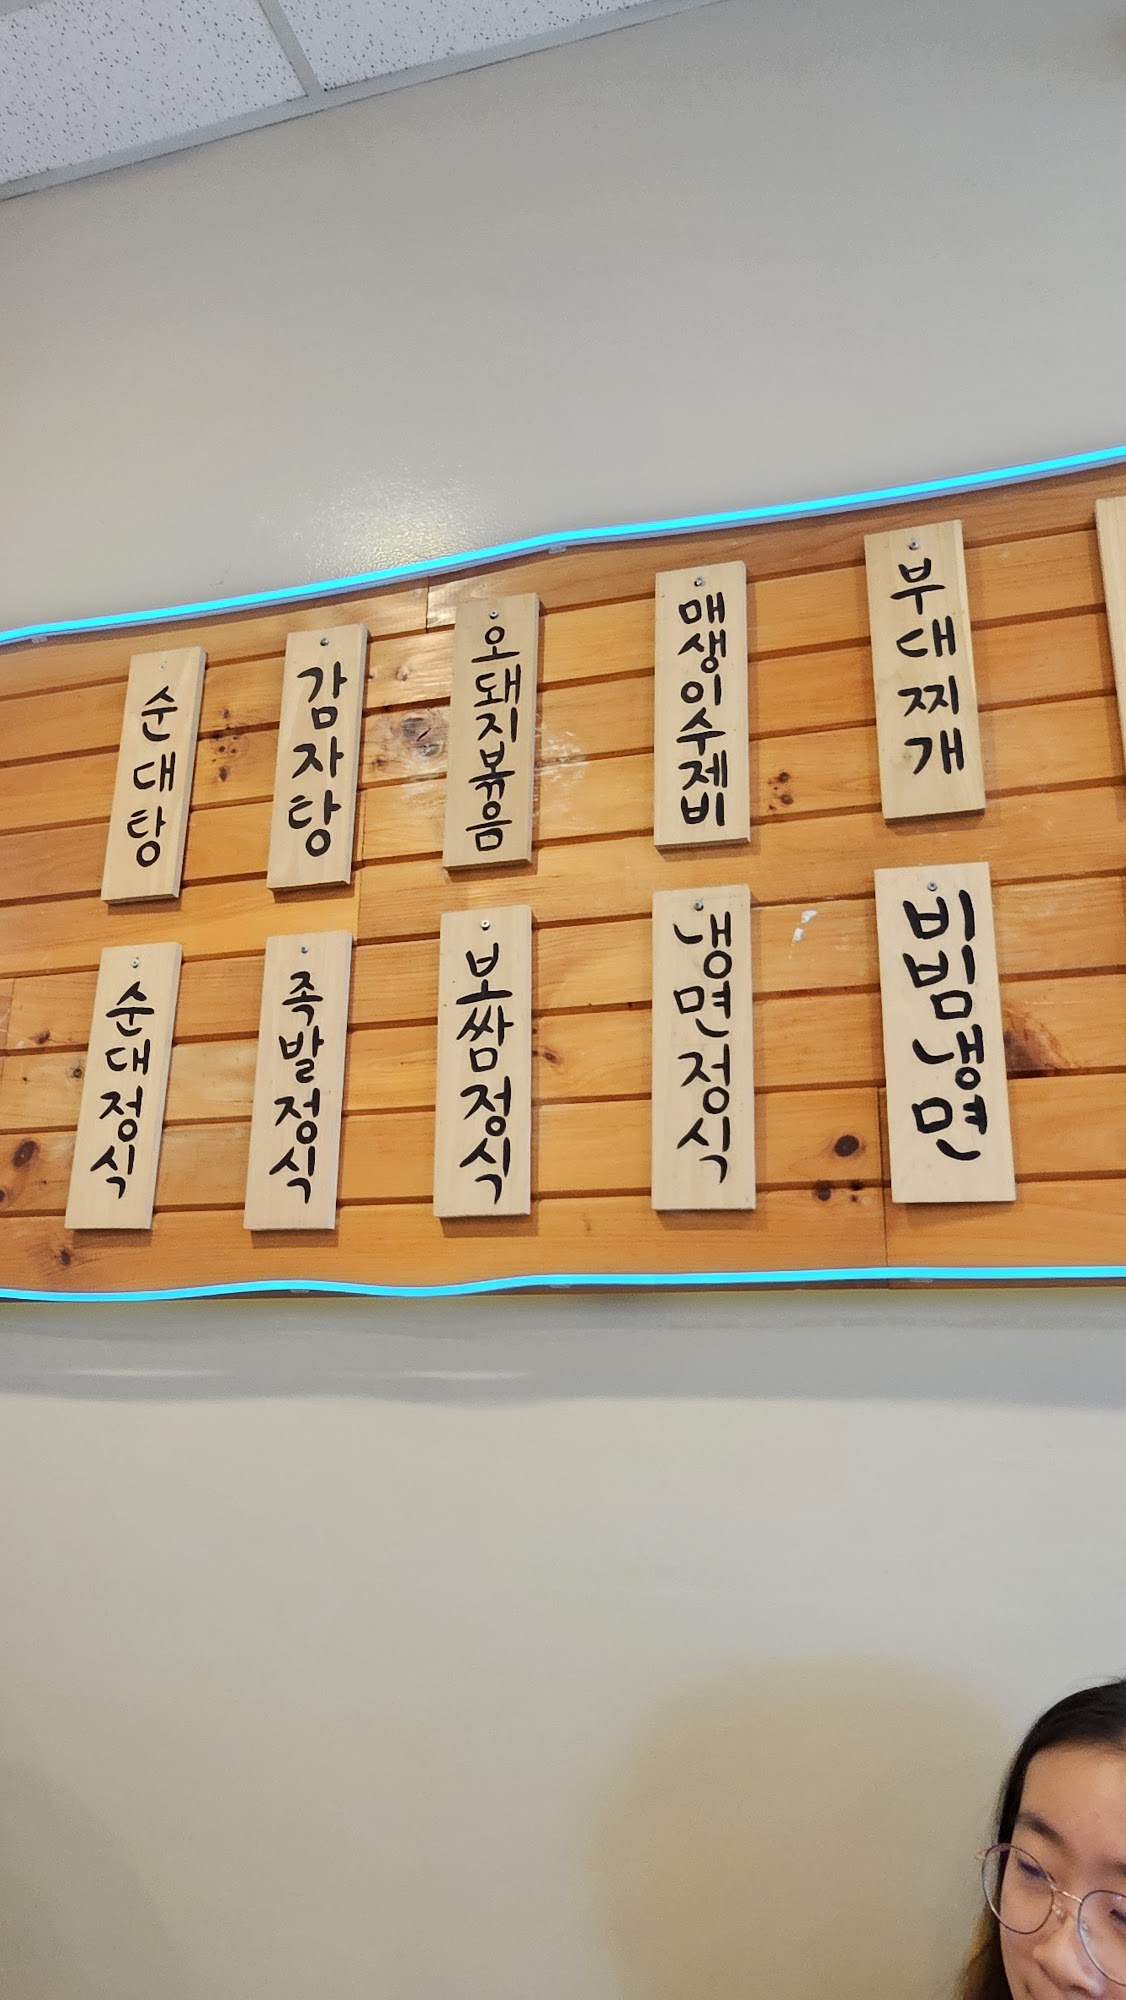 순대탕
감자탕
오돼지볶음
매생이수제비
부대찌개
순대정식
족발정식
보쌈정식
냉면정식
비빔냉면